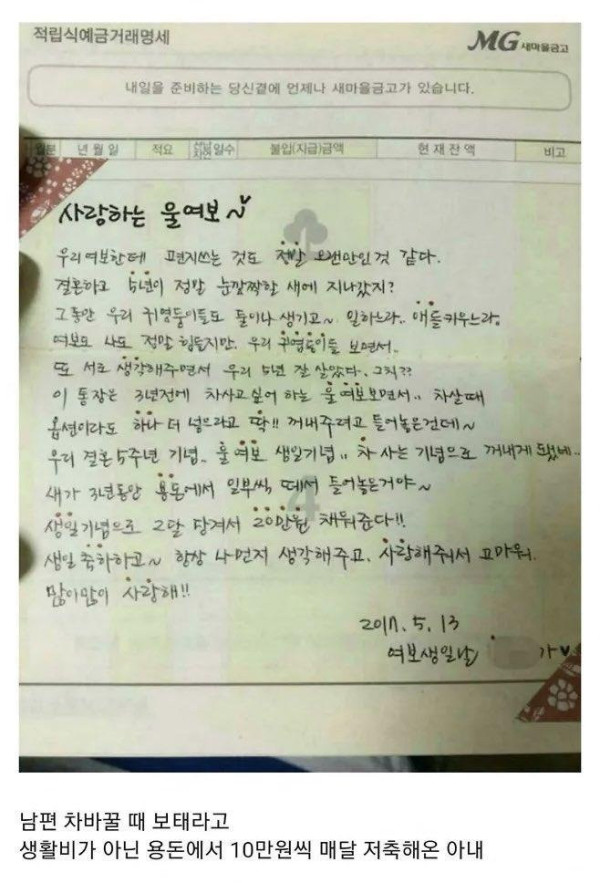 적립식예금거래명세
MG 새마을금고
내일을 준비하는 당신곁에 언제나 새마을금고가 있습니다.
월분 년월일 적요 일수 불입(지급)금액 현재잔액 비고
사랑하는 울여보~♥
우리여보한테 편지쓰는 것도 정말 오랜만인것 같다.
결혼하고 5년이 정말 눈깜짝할 새에 지나갔지?
그동안 우리 귀염둥이들도 둘이나 생기고~ 일하느라.. 애들키우느라,
여보도 나도 정말 힘들지만, 우리 귀염둥이들 보면서..
또 서로 생각해주면서 우리 5년 잘 살았다. 그치??
이 통장은 3년전에 차사고싶어 하는 울여보보면서.. 차살때
옵션이라도 하나 더 넣으라고 딱!! 꺼내주려고 들어놓은건데~
우리 결혼 5주년 기념.. 울여보 생일기념.. 차 사는 기념으로 꺼내게 됐네..
새가 3년동안 용돈에서 일부씩 떼서 들어놓은거야~
생일기념으로 2달 당겨서 20만원 채워준다!!
생일 축하하고~ 항상 나먼저 생각해주고, 사랑해줘서 고마워.
많이많이 사랑해!!
2017. 5. 13
여보생일날 가♥
남편 차바꿀 때 보태라고
생활비가 아닌 용돈에서 10만원씩 매달 저축해온 아내